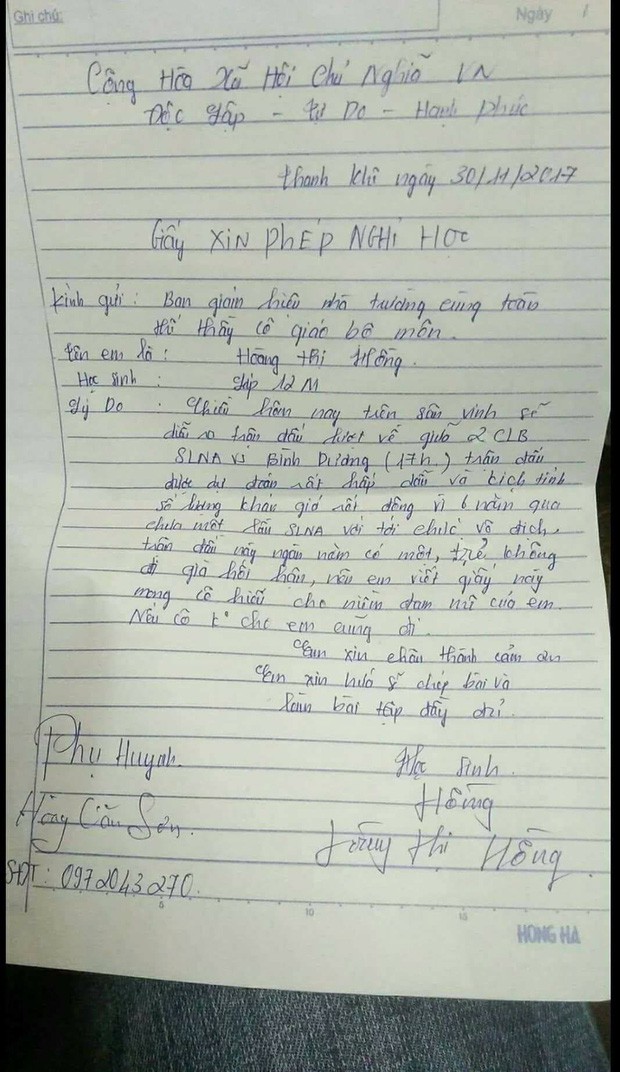 Ghi chú:
Ngày /
Cộng Hòa Xã Hội Chủ Nghĩa VN
Độc Lập - Tự Do - Hạnh Phúc
Thanh Khê ngày 30/11/2017
Giấy XIN PHÉP NGHỈ HỌC
Kính gửi : Ban giám hiệu nhà trường cùng toàn
thể thầy cô giáo bộ môn.
Tên em là : Hoàng Thị Hồng.
Học sinh : Lớp 12M
Lý Do : Chiều hôm nay trên sân vinh sẽ
diễn ra trận đấu lượt về giữa 2 CLB
SLNA vs Bình Dương (17h.) trận đấu
được dự đoán rất hấp dẫn và kịch tính
số lượng khán giả rất đông vì 6 năm qua
chưa một lần SLNA với tới chức vô địch.
trận đấu này ngàn năm có một, trẻ không
đi già hối hận, nên em viết giấy này
mong cô hiểu cho niềm đam mê của em.
Nếu cô k° cho em cũng đi.
Em xin chân thành cảm ơn
Em xin hứa sẽ chép bài và
làm bài tập đầy đủ.
Phụ Huynh.
Học sinh.
Hồng
Sơn.
Thị Hồng.
SĐT : 0972043270.
5 10 15
HONG HA